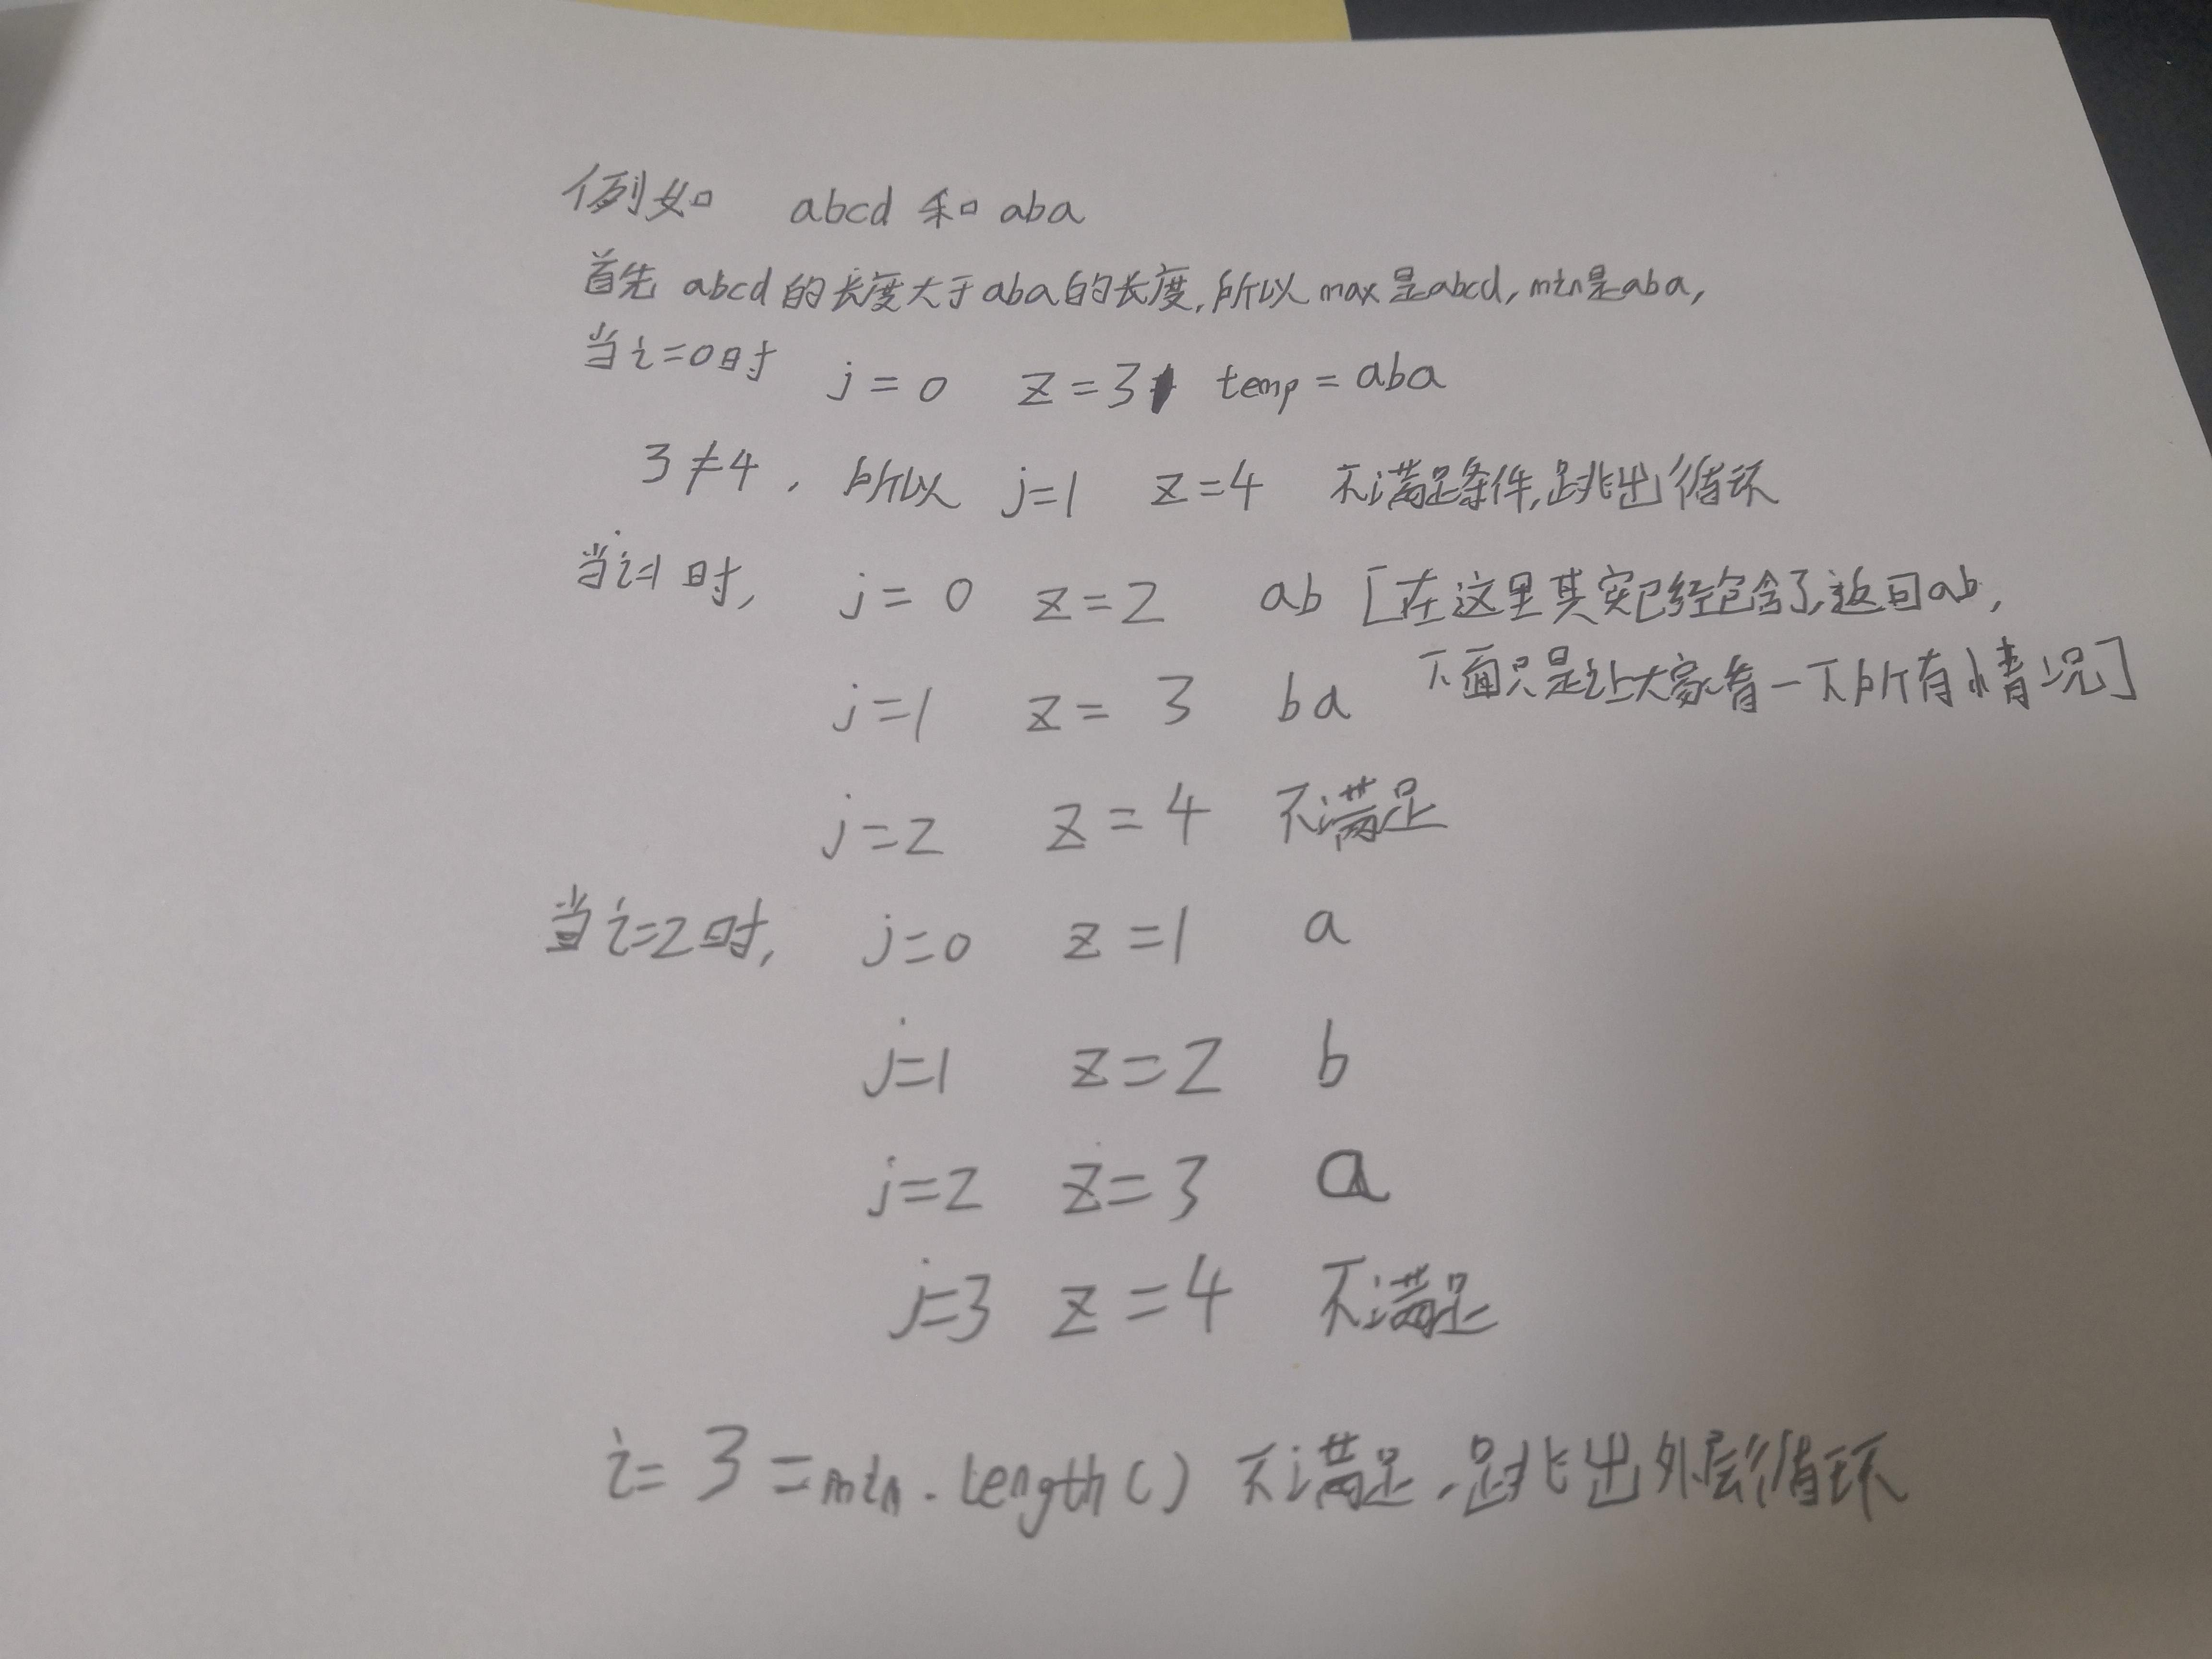 例如 abcd 和 aba
首先 abcd 的长度大于 aba 的长度,所以 max 是 abcd, min 是 aba,
当 i=0 时 j=0 z=3 temp=aba
3≠4, 所以 j=1 z=4 不满足条件,跳出循环
当 i=1 时, j=0 z=2 ab [在这里其实已经包含了,返回ab,
j=1 z=3 ba 下面只是让大家看一下所有情况]
j=2 z=4 不满足
当 i=2 时, j=0 z=1 a
j=1 z=2 b
j=2 z=3 a
j=3 z=4 不满足
i=3=min.length() 不满足,跳出外层循环